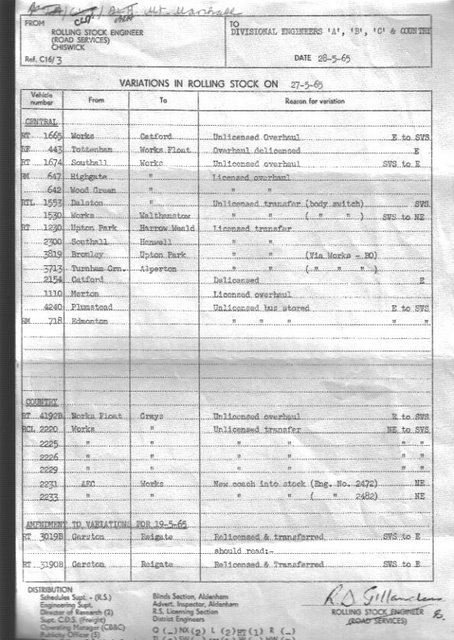 Mr. Marshall
FROM
ROLLING STOCK ENGINEER
(ROAD SERVICES)
CHISWICK
Ref. C16/3
TO
DIVISIONAL ENGINEERS 'A', 'B', 'C' & COUNTRY
DATE 28-5-65
VARIATIONS IN ROLLING STOCK ON 27-5-65
Vehicle number From To Reason for variation
CENTRAL
RT 1665 Works Catford Unlicensed Overhaul E to SVS
RF 443 Tottenham Works Float Overhaul delicensed E
RT 1674 Southall Works Unlicensed overhaul SVS to E
RM 647 Highgate " Licensed overhaul
642 Wood Green " " "
RTL 1553 Dalston " Unlicensed transfer (body switch) SVS
1530 Works Walthamstow " " ( " " ) SVS to NE
RT 1230 Upton Park Harrow Weald Licensed transfer
2300 Southall Hanwell " "
3819 Bromley Upton Park " " (Via Works - BO)
3713 Turnham Grn. Alperton " " ( " " " )
2154 Catford Delicensed E
1110 Merton Licensed overhaul
4240 Plumstead Unlicensed bus stored E to SVS
RM 718 Edmonton " " " " "
COUNTRY
RT 4192B Works Float Grays Unlicensed overhaul E to SVS
RCL 2220 Works " Unlicensed transfer NE to SVS
2225 " " " " " "
2226 " " " " " "
2229 " " " " " "
2231 AEC Works New coach into stock (Eng. No. 2472) NE
2233 " " " " " " ( " 2482) NE
AMENDMENT TO VARIATIONS FOR 19-5-65
RT 3019B Garston Reigate Relicensed & transferred SVS to E
should read:-
RT 3190B Garston Reigate Relicensed & Transferred SVS to E
DISTRIBUTION
Schedules Supt. - (R.S.)
Engineering Supt.
Director of Research (2)
Supt. C.D.S. (Freight)
Operating Manager (CB&C)
Publicity Officer (5)
Blinds Section, Aldenham
Advert. Inspector, Aldenham
R.S. Licensing Section
District Engineers
R.D. Gillanders
ROLLING STOCK ENGINEER
(ROAD SERVICES)